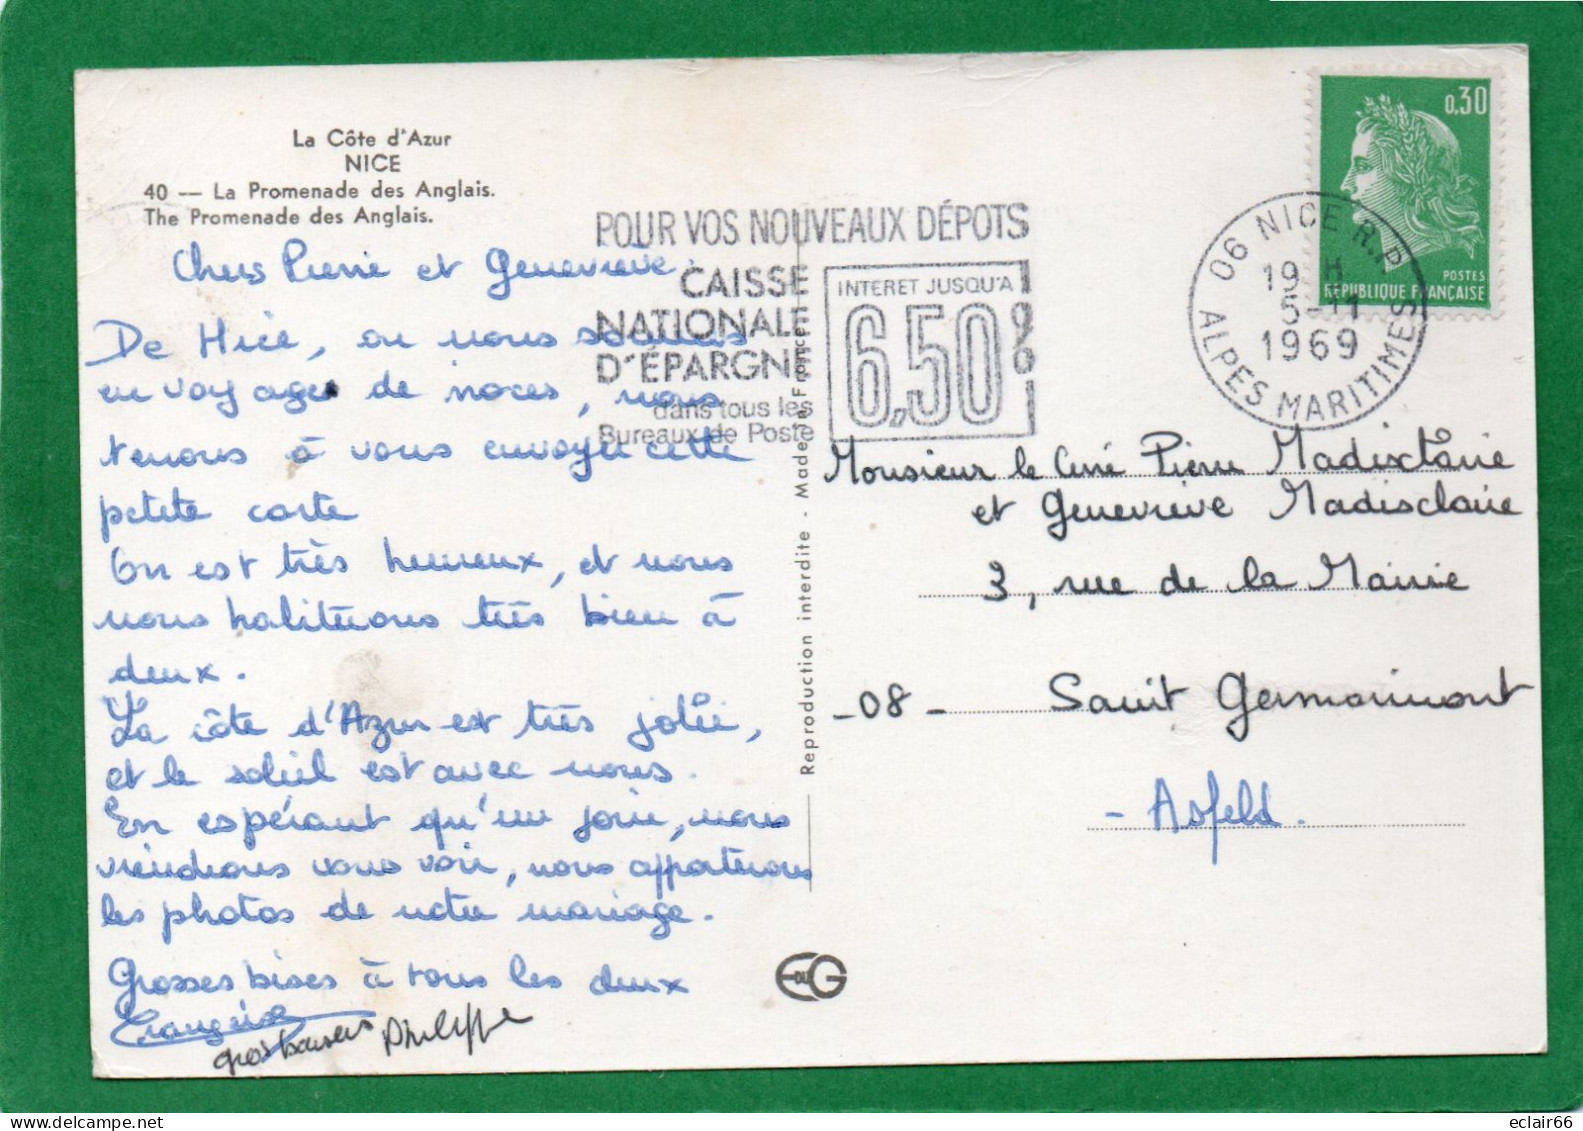 La Côte d'Azur
NICE
40 — La Promenade des Anglais.
The Promenade des Anglais.
Chers Pierre et Geneviève.
De Nice, où nous sommes
en voyage de noces, nous
tenons à vous envoyer cette
petite carte
On est très heureux, et nous
nous habituons très bien à
deux.
La côte d'Azur est très jolie,
et le soleil est avec nous.
En espérant qu'un jour, nous
viendrons vous voir, nous apporterons
les photos de notre mariage.
Grosses bises à tous les deux
Françoise
gros baisers Philippe
POUR VOS NOUVEAUX DÉPÔTS
CAISSE
NATIONALE
D'ÉPARGNE
dans tous les
Bureaux de Poste
INTERET JUSQU'A
6,50%
Reproduction interdite - Made in France
EDUG
06 NICE R.P.
19 H
5-11
1969
ALPES MARITIMES
0,30
POSTES
REPUBLIQUE FRANÇAISE
Monsieur le Curé Pierre Madisclaire
et Geneviève Madisclaire
3, rue de la Mairie
-08- Saint Germainmont
- Asfeld.
eclair66